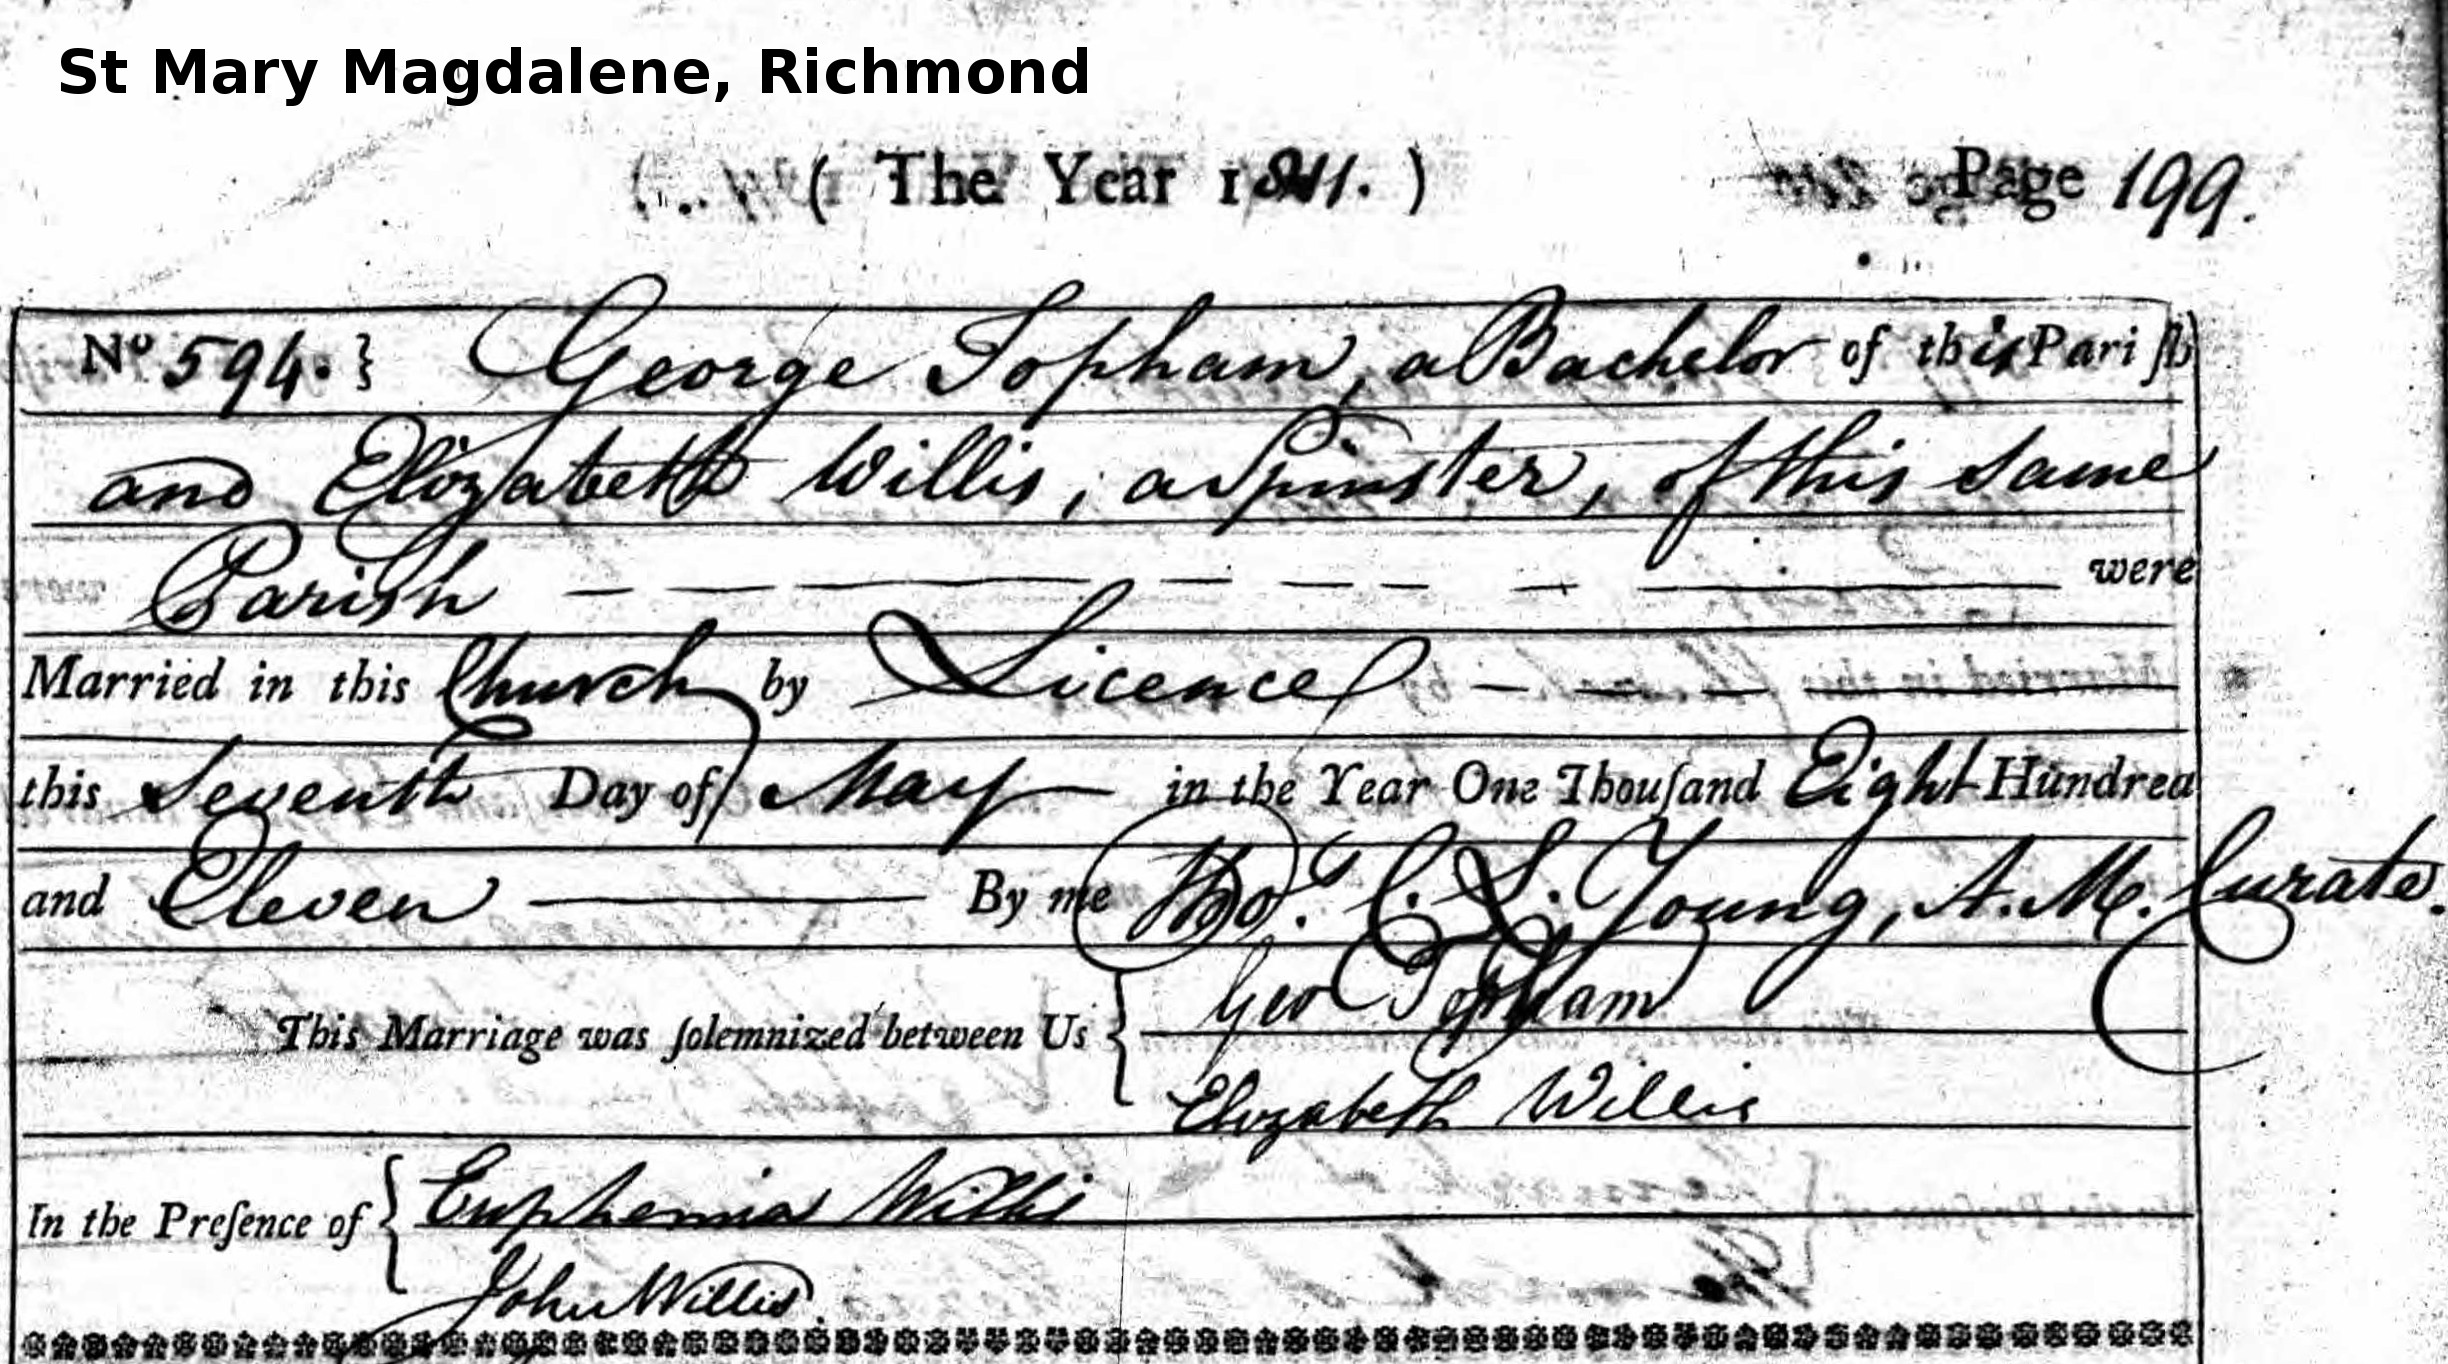 St Mary Magdalene, Richmond
( The Year 1811. ) Page 199.
No 594. } George Topham, a Bachelor of this Pariſh
and Elizabeth Willis, a Spinster, of this same
Parish — — — — — — — were
Married in this Church by Licence — — — —
this Seventh Day of May — in the Year One Thouſand Eight Hundred
and Eleven — By me Tho.s C. S. Young, A. M. Curate.
This Marriage was ſolemnized between Us { Geo Topham
Elizabeth Willis
In the Preſence of { Euphemia Willis
John Willis.